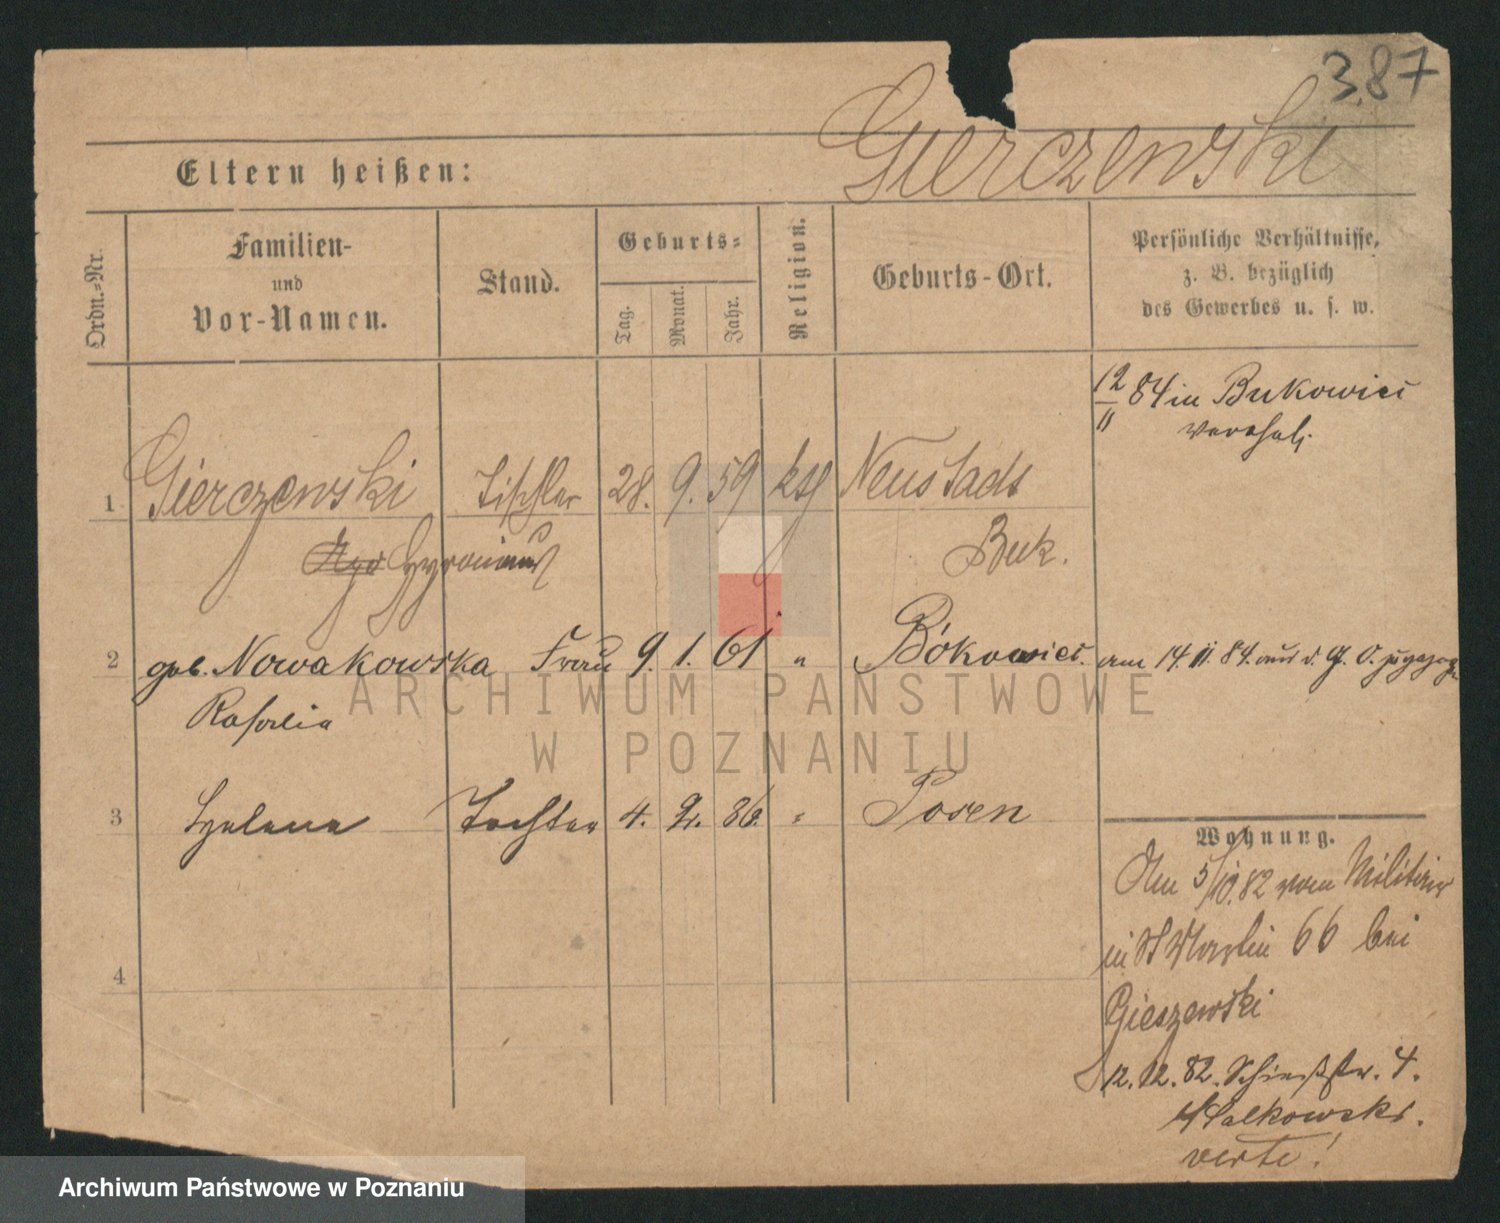 3.87
Gierczewski
Eltern heißen:
Ordn.-Nr.
Familien-
und
Vor-Namen.
Stand.
Geburts-
Tag.
Monat.
Jahr.
Religion.
Geburts-Ort.
Persönliche Verhältnisse,
z. B. bezüglich
des Gewerbes u. s. w.
12/11 84 in Bukowiec
verehel.
1 Gierczewski Tischler 28. 9. 59 ktl Neustadt
Hyronimus Buk.
2 geb. Nowakowska Frau 9. 1. 61 " Bókowiec. am 14.11.84. aus d. O.
Rosalia
3 Helene Tochter 4. 9. 86. " Posen
Wohnung.
Am 5/10.82 vom Militär
in St Martin 66 bei
Gieszewski
12.12.82. Schießstr. 4.
Walkowski.
verte!
4
ARCHIWUM PAŃSTWOWE
W POZNANIU
Archiwum Państwowe w Poznaniu